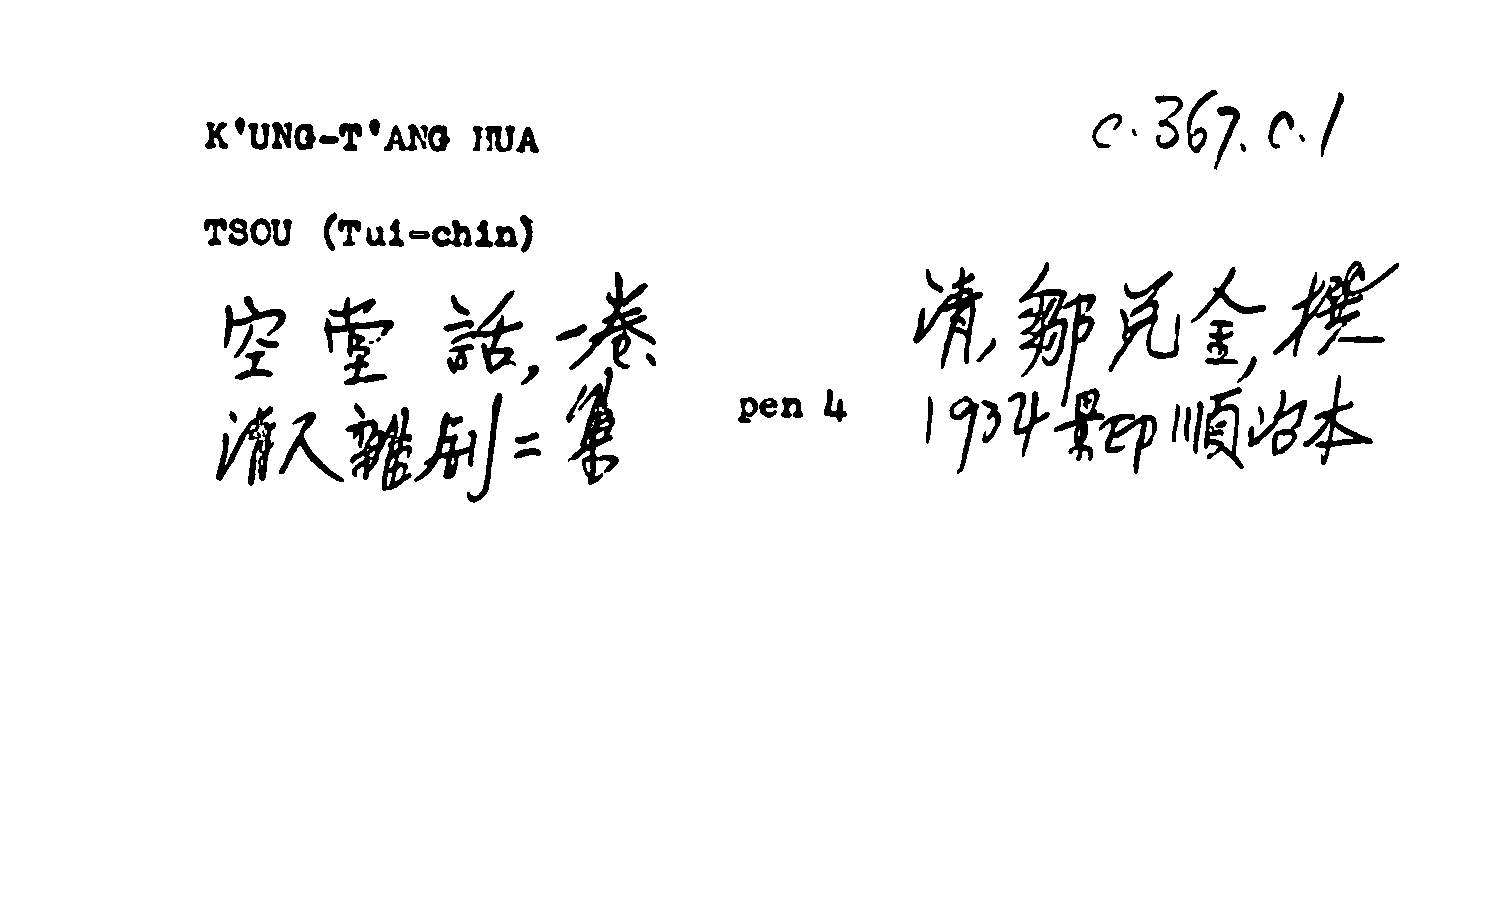 K'UNG-T'ANG HUA c.367.c.1
TSOU (Tui-chin)
空堂話,一卷、 清,鄒兌金,撰
清人雜劇二集 pen 4 1934景印順治本